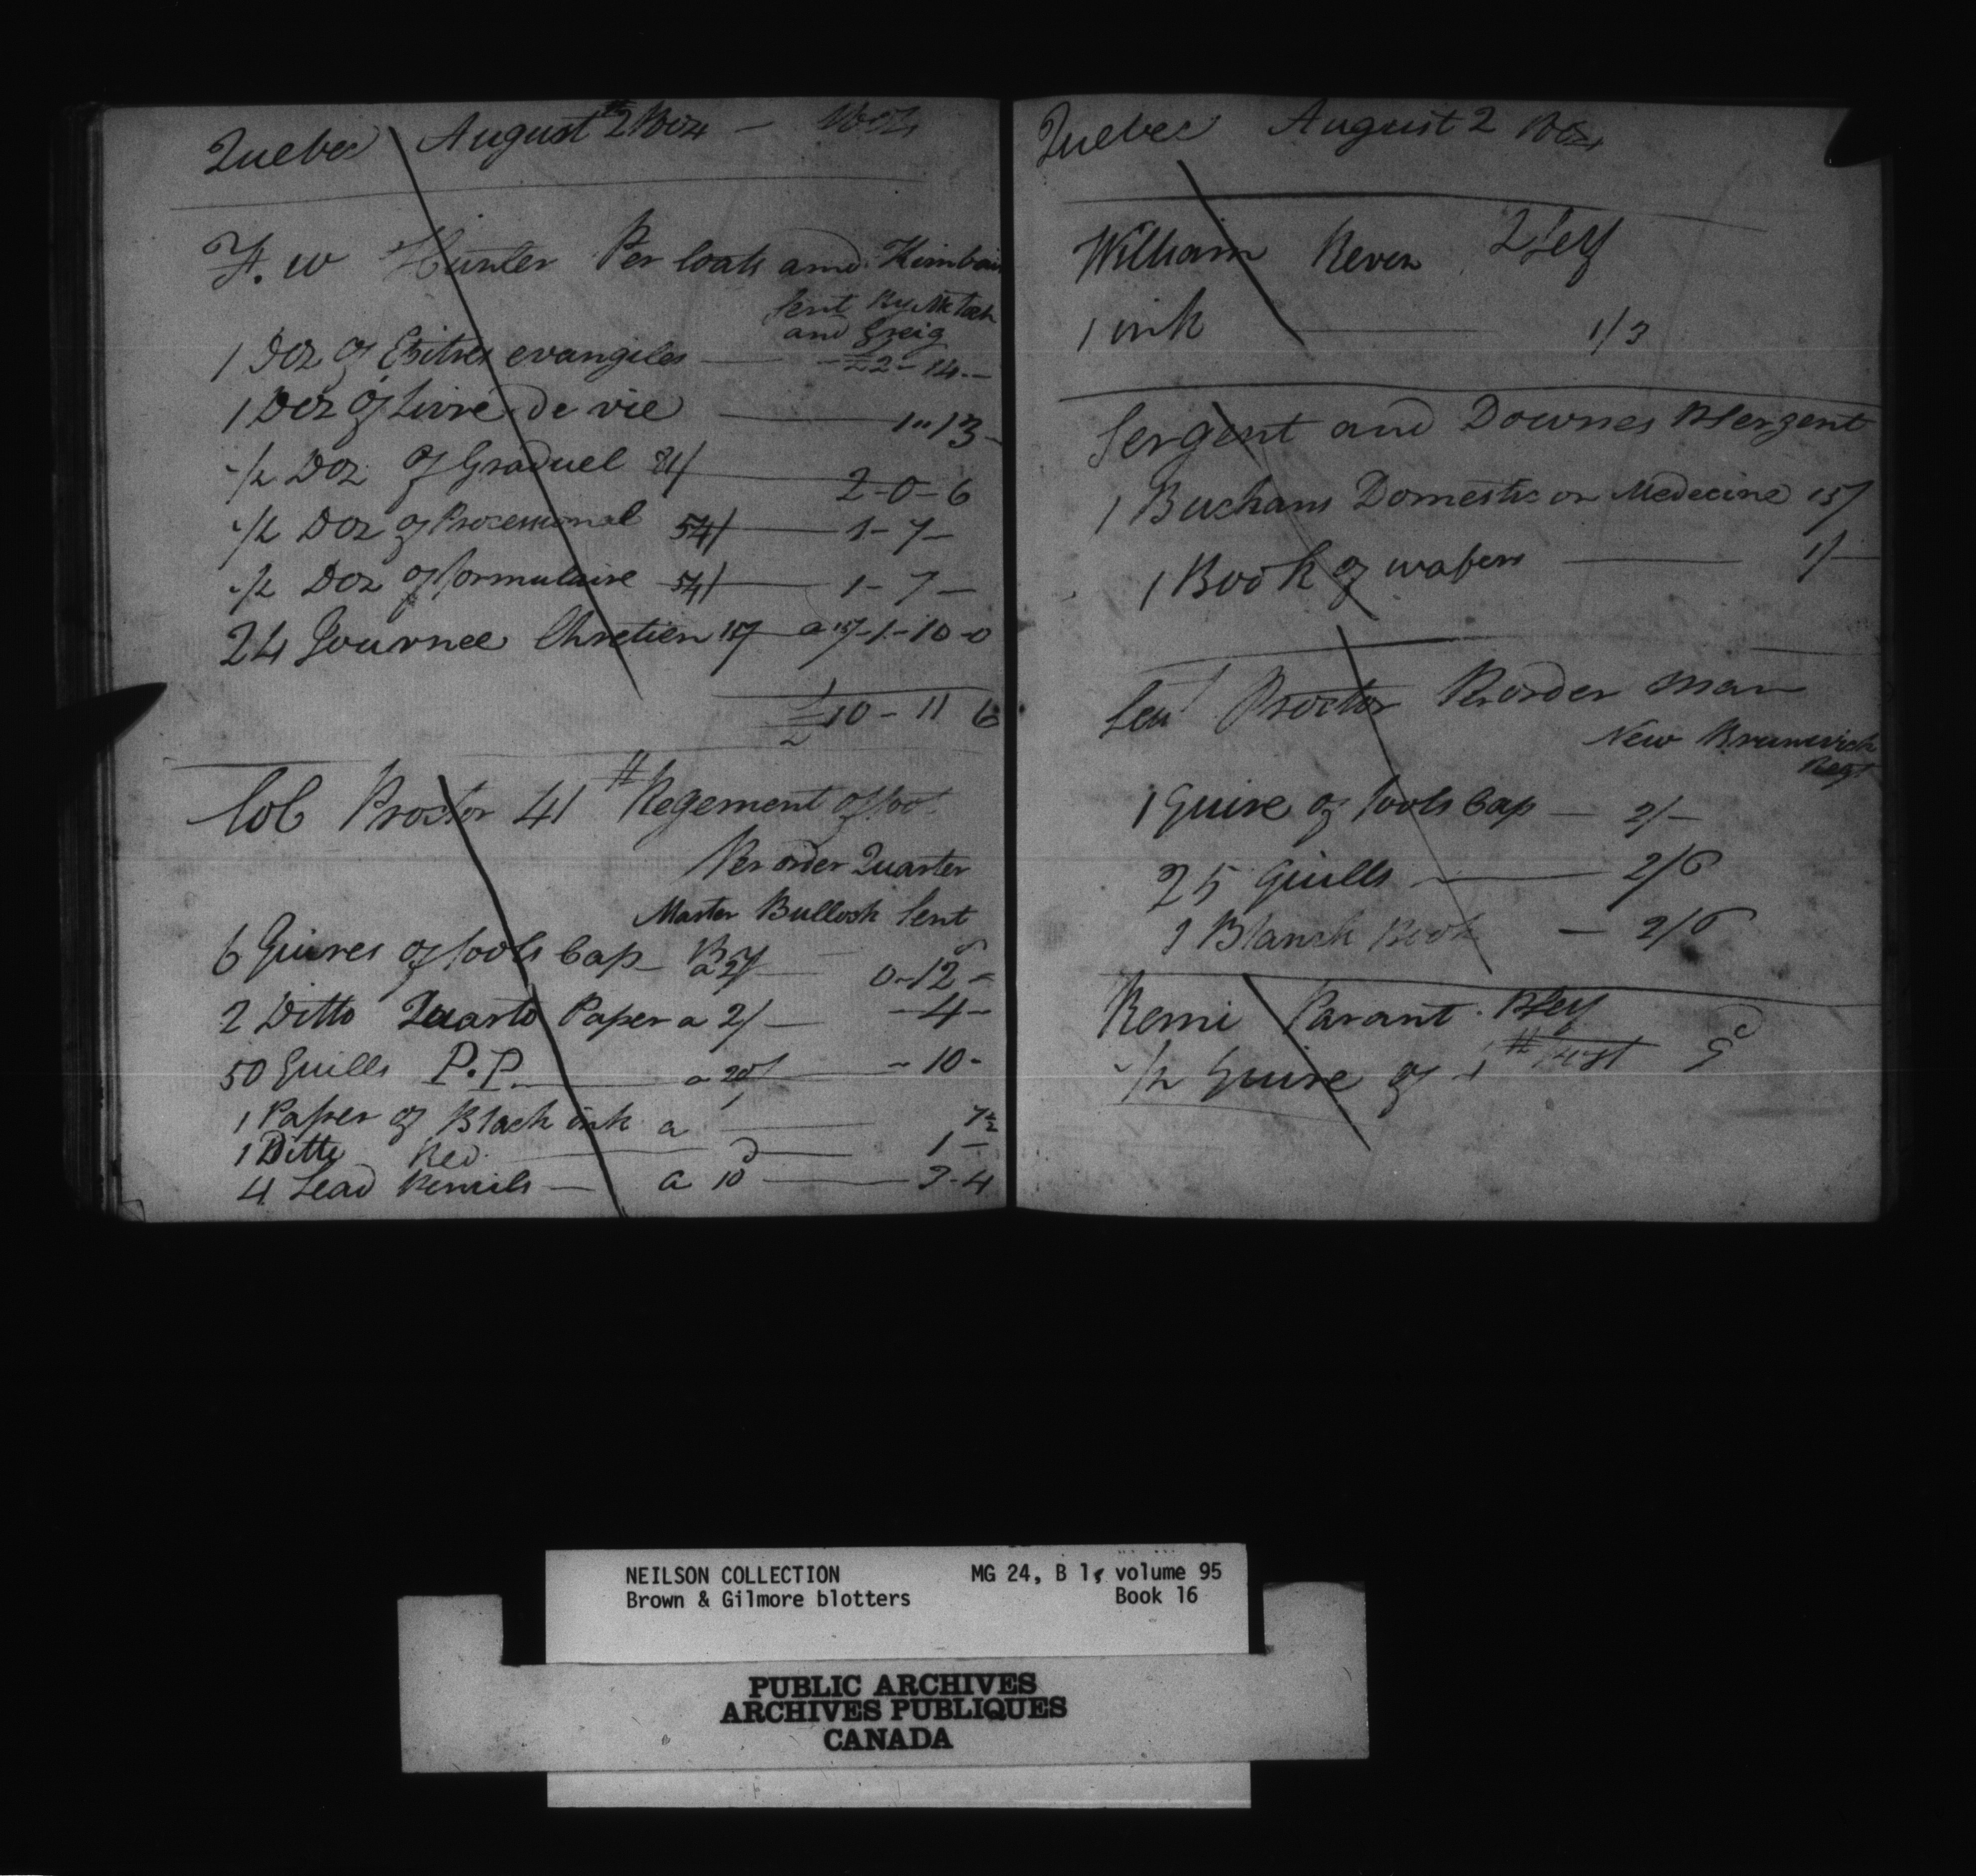 Quebec August 2 1804 - 1804
F. W Hunter Per Coats and
Sent By
and Greig
1 Doz of Epitres evangiles £2-14-
1 Doz of Livre de vie 1"13-
1/2 Doz of Graduel 81/ 2-0-6
1/2 Doz of Processional 54/ 1-7-
1/2 Doz of formulaire 54/ 1-7-
24 Journee Chretien 15/ a 15/-1-10-0
£10-11 6
Col Proctor 41 Regement of foot
Per order Quarter
Master Bullock Sent
6 Quires of fools Cap By
a 2/ 0-12-
2 Ditto Quarto Paper a 2/ -4-
50 Quills P.P. a 20/ -10-
1 Paper of Black ink a 7 1/2
1 Ditto Red 1-
4 Lead Pencils a 10d 3-4
Quebec August 2 1804
William Reven
1 ink 1/3
Sergent and Downes PSergent
1 Buchans Domestic or Medecine 15/
1 Book of wafers 1/-
Leut Proctor Per order man
New Brunswick
Regt
1 Quire of fools Cap - 2/-
25 Quills 2/6
1 Blanck Book - 2/6
Remi Parant. PSelf
1/2 Quire of Post 9d
NEILSON COLLECTION MG 24, B 1, volume 95
Brown & Gilmore blotters Book 16
PUBLIC ARCHIVES
ARCHIVES PUBLIQUES
CANADA